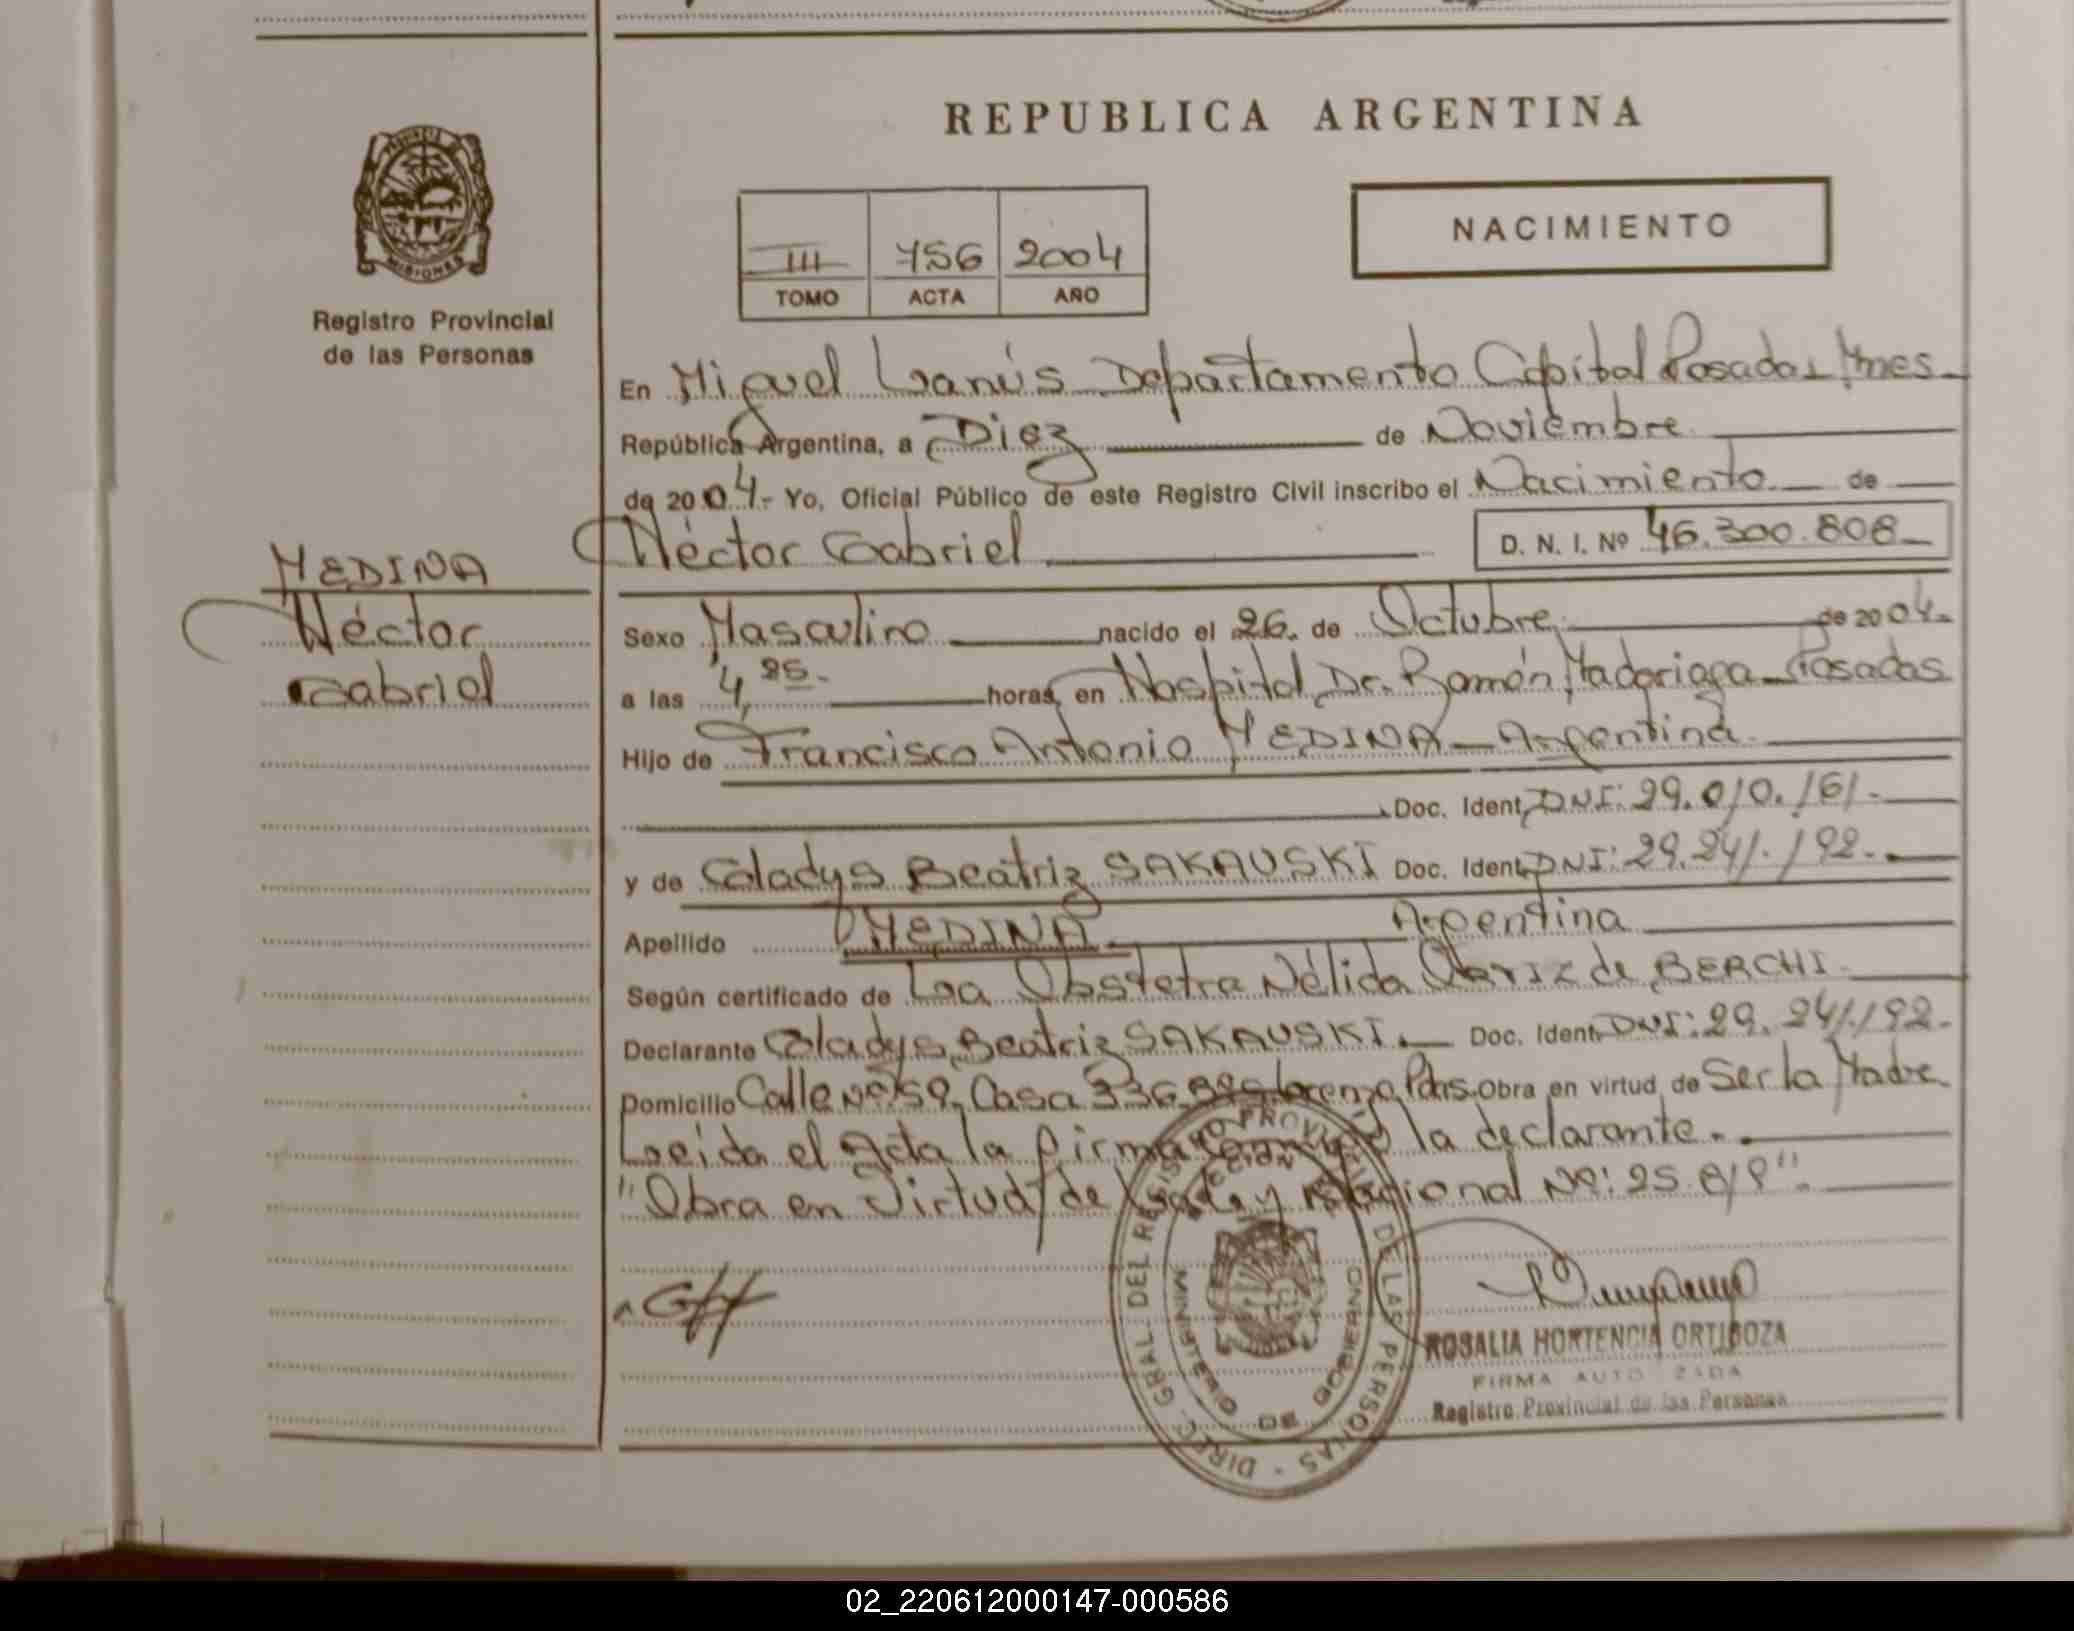 PROVINCIA DE
MISIONES
Registro Provincial
de las Personas
REPUBLICA ARGENTINA
III 756 2004
TOMO ACTA AÑO
NACIMIENTO
En Miguel Lanús Departamento Capital Posadas Mnes.
República Argentina, a Diez de Noviembre
de 2004.- Yo, Oficial Público de este Registro Civil inscribo el Nacimiento de
Héctor Gabriel D. N. I. Nº 46.300.808
MEDINA
Héctor
Gabriel
Sexo Masculino nacido el 26. de Octubre de 2004.
a las 4,25.- horas, en Hospital Dr. Ramón Madariaga Posadas
Hijo de Francisco Antonio MEDINA Argentina
Doc. Ident. DNI: 29.010.161.-
y de Gladys Beatriz SAKAUSKI Doc. Ident. DNI: 29.241.192.-
Apellido MEDINA Argentina
Según certificado de La Obstetra Nélida de BERCHI
Declarante Gladys Beatriz SAKAUSKI. Doc. Ident. DNI: 29.241.192.
Domicilio Calle Nº 159 Casa 336 Pdas. Obra en virtud de Ser la Madre
Leida el Acta la firma conmigo la declarante.
"Obra en Virtud de Ley Nacional Nº: 25.819".
DIREC. GRAL. DEL REGISTRO PROVINCIAL DE LAS PERSONAS
MINISTERIO DE GOBIERNO
ROSALIA HORTENCIA ORTIGOZA
FIRMA AUTORIZADA
Registro Provincial de las Personas
02_220612000147-000586